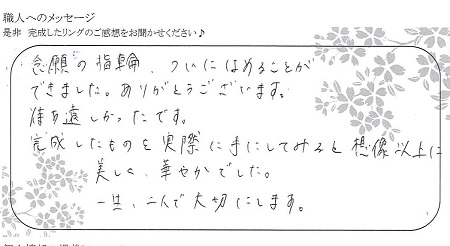 職人へのメッセージ
是非 完成したリングのご感想をお聞かせください♪
念願の指輪、ついにはめることが
できました。ありがとうございます。
待ち遠しかったです。
完成したものを実際に手にしてみると想像以上に
美しく、華やかでした。
一生、二人で大切にします。